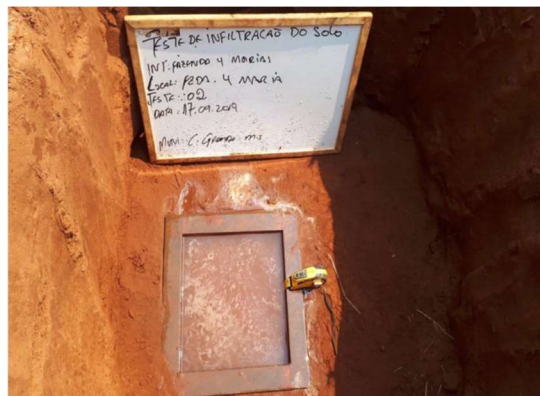 TESTE DE INFILTRAÇÃO DO SOLO
INT: FAZENDA 4 MARIAS
LOCAL: FZDA. 4 MARIA
TESTE: 02
DATA: 17.09.2019
MUN: C. GRANDE MS